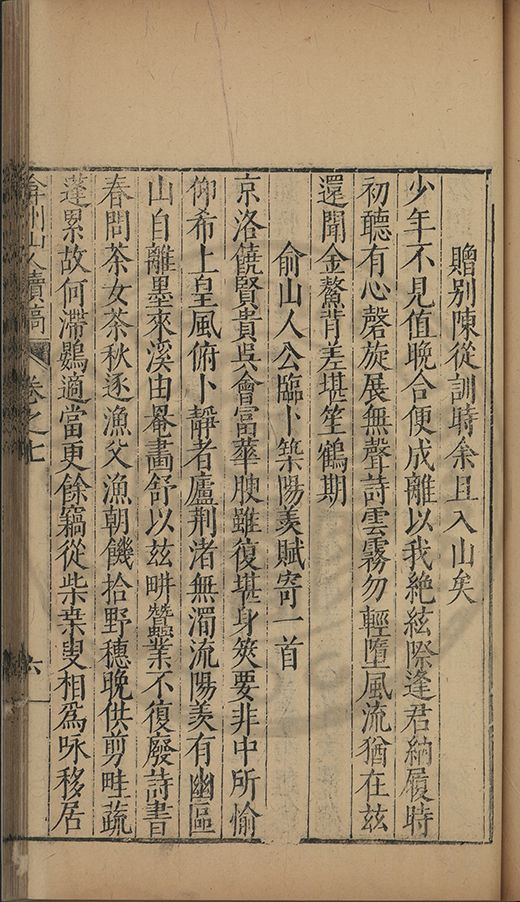 贈別陳從訓時余且入山矣
少年不見值晚合便成離以我絶絃際逢君納履時
初聽有心磬旋展無聲詩雲霧勿輕墮風流猶在兹
還聞金鰲背差堪笙鶴期
俞山人公臨卜築陽羨賦寄一首
京洛饒賢貴吳會富華腴雖復堪身筴要非中所愉
仰希上皇風俯卜靜者廬荆渚無濁流陽羨有幽區
山自離墨來溪由罨畫舒以玆畊蠶業不復廢詩書
春問茶女茶秋逐漁父漁朝饑拾野穗晚供剪畦蔬
蓬累故何滯鷃適當更餘竊從柴桒叟相爲咏移居
弇州山人續稿 卷之七 六